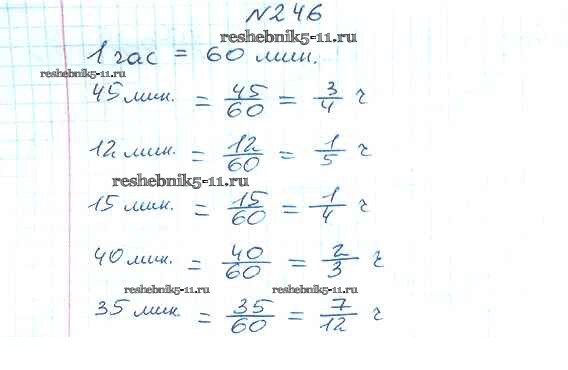 №246
reshebnik5-11.ru
1 час = 60 мин.
reshebnik5-11.ru
45 мин. = 45/60 = 3/4 ч
12 мин. = 12/60 = 1/5 ч
reshebnik5-11.ru
15 мин. = 15/60 = 1/4 ч
40 мин. = 40/60 = 2/3 ч
reshebnik5-11.ru reshebnik5-11.ru
35 мин. = 35/60 = 7/12 ч